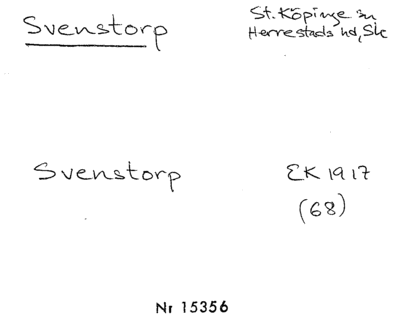 Svenstorp
St. Köpinge sn
Herrestads hd, Sk
Svenstorp
EK 1917
(68)
Nr 15356